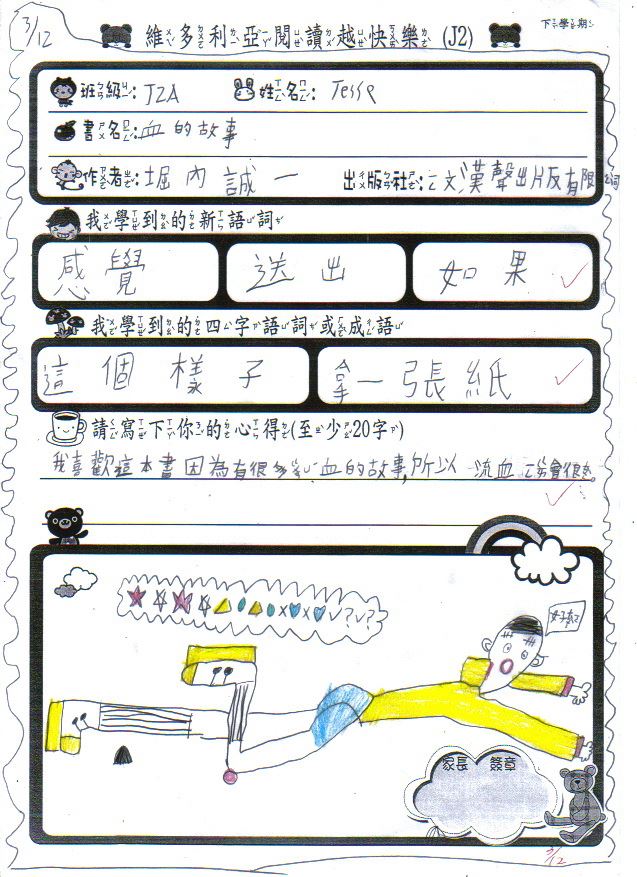 3/12
下學期
維多利亞閱讀越快樂 (J2)
班級: J2A 姓名: Jesse
書名: 血的故事
作者: 堀內誠一 出版社: 漢聲出版有限
我學到的新語詞
感覺 送出 如果
我學到的四字語詞或成語
這個樣子 拿一張紙
請寫下你的心得(至少20字)
我喜歡這本書因為有很多 血的故事,所以 流血 會很
家長 簽章
3/12